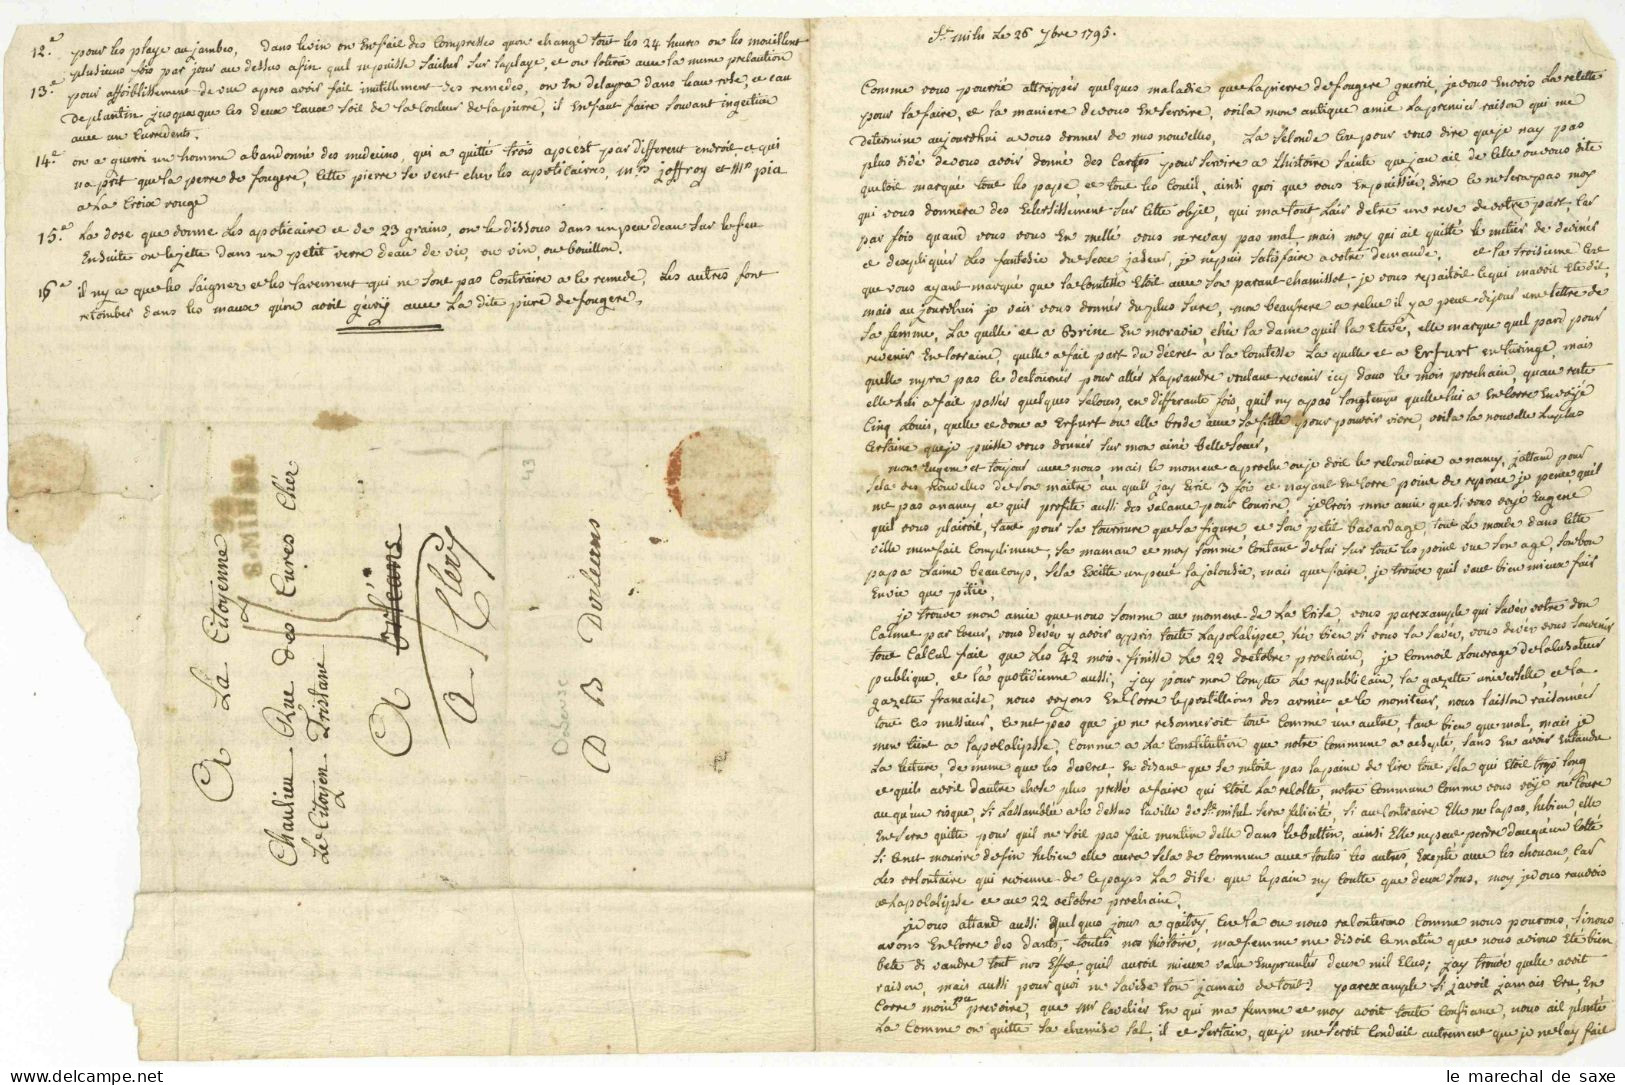 12.e pour les playe au jambes, dans le vin on En fait des Compresses quon change tout les 24 heures on les mouillent
plusieurs fois par jour au dessus afin quil ne puisse Saicher Sur la playe, et on lotera avec la meme precaution
13.e pour affoiblissement de vue apres avoir fait inutillement des remedes, on En delayra dans leau rose, et eau
de plantin jusquaque les deux Eaux soit de la Couleur de la pierre, il En faut faire Souvant ingection
avec un Curredents.
14.e on a guerri un homme abandonné des medecins, qui a quitté trois apcest par different endroit, et qui
na prit que la perre de fougere, Cette pierre Se vent chez les apoticaires, mrs joffroy et mr pia
a La Croix rouge
15.e La dose que donne Les apoticaire et de 23 grains, on le dissous dans un peu deau Sur le feu
Ensuite on le jette dans un petit verre deau de vie, ou vin, ou bouillon.
16.e il ny a que les Saigner et les lavement qui ne Sont pas Contraire a le remede, Les autres font
retomber dans les maux quon avoit gerrÿ avec La dite pierre de fougere,
A La Citoyenne
Chaulieu Rue des Cures Chér
Le Citoyen Tristane
A Orleans
a Clery
D B Dorleans
S-MIHIEL
43
St mihil Le 26 7bre 1795.
Comme vous pourrié attrappés quelques maladie que La pierre de fougere guerrit, je vous Envois La relette
pour la faire, et la maniere de vous En Servire, voila mon antique amie La premier raison qui me
determine aujourdhui a vous donner de nos nouvelles, La Seconde Cet pour vous dire que je nay pas
plus didé de vous avoir donné des Cartes pour Servire a Lhistoire Sainte que jan ait de Celle ou vous dite
quetoit marqué tout les pape, et tout les Concil, ainsi quoi que vous En puissiés dire Ce ne Sera pas moy
qui vous donnera des Eclersissement Sur Cette objet, qui ma tout Lair detre un reve de votre part, Car
par fois quand vous vous En mellé vous ne revay pas mal mais moy qui ait quitté le métiers de devinér
et dexpliquér Les fantesie du Sexe jadeur, je ne puis Satisfaire a votre demande, et la troisieme Cet
que vous ayant marqué que la Comtesse Etoit avec Son parant chamissot, je vous repaitoit Ce qui mavoit Eté dit,
mais aujourdhui je vais vous donnér du plus Sure, mon beaufrere a relue il y a peut dejour une lettre de
Sa femme, La quelle et a Brine En moravie, chér la dame quil la Elevé, elle marque quel pard pour
revenir En Lorraine, quelle a fait part du decret a la Comtesse La quelle et a Erfurt en turinge, mais
quelle nyra pas Ce destourner pour allér La prandre voulant revenir icy dans le mois prochain, quau reste
elle Lui a fait passés quelques Secours, en differante fois, quil ny a pas longtemps quelle lui a En Corre Envoÿé
Cinq Louis, quelle et donc a Erfurt ou elle brode avec La fille pour pouvoir vivre, voila la nouvelle La plus
Certaine que je puisse vous donnér Sur mon ainé belle Soeur,
mon Eugene et toujour avec nous mais le moment aproche ou je doit le reconduire a nancy, jattand pour
Sela des Nouvelles de Son maitre au quel jay Ecrit 3 fois et nayant En Corre point de reponse je pense quil
ne pas a nancy et quil profite aussi des valance pour Courire, je Crois mon amie que Si vous voyé Eugene
quil vous plairoit, tant pour Sa tournure que Sa figure, et Son petit bavardage, tout Le monde dans Cette
ville men fait Compliment, Sa maman et moy Somme Contant de lui Sur tout les point vue Son age, Son bon
papa Laime beaucoup, Sela Excitte un peut la jalousie, mais que faire, je trouve quil vaut bien mieux fair
Envie que pitié,
je trouve mon amie que nous Somme au moment de La Crise, vous par example qui Savér votre don
Calme par Coeur, vous dever y avoir appris toute Lapolalipce, hér bien Si vous la Savér, vous devér vous Souvenir
tout Calcul fait que Les 42 mois finisse Le 22 doctobre prochain, je Connoit Louvrage de La
publique, et La quotidienne aussi, jay pour mon Compte Le republicain, la gazette universelle, et La
gazette francaise, nous voyons En Corre Le postillions des armée, et le moniteur, nous laisson raisonner
tout Ces messieur, Ce net pas que je ne resonneroit tout Comme un autre, tant bien que mal, mais je
men tient a Lapolalipse, Comme a La Constitution que notre Commune a acsepté, Sans En avoir Entandue
La lecture, de meme que les decret, En disant que Se netoit pas la paine de lire tout Sela qui Etoit trop long
et quils avoit dautre chose plus pressé a faire qui Etoit La recolte, notre Commune Comme vous voyé ne Court
au qu'un risque, Si Lassamblée a le dessus La ville de St mihil Sera felicité, Si au Contraire Elle ne la pas, hebien, elle
En Sera quitte pour quil ne Soit pas fait mention delle dans le bultin, ainsi Elle ne peut perdre dauqu'un Coté
Si Ce net mourire de fin hebien elle aura Sela de Commun avec toutes les autres, Exepté avec les chouan, Car
Les volontaire qui revienne de Ce payis La dise que le pain ny Coutte que deux Sous, moy je vous ranvois
a Lapolalipse et au 22 octobre prochain,
je vous attand aussi quelques jours a, Cet La ou nous ralonterons Comme nous pourons, Si nous
avons En Corre des dants, toutes nos histoire, ma femme me disoit Ce matin que nous avions Eté bien
bete di vandre tout nos Effet, quil auroit mieux valu Emprunter deux mil Ecus; jay trouvé quelle avoit
raison, mais aussi pour quoi ne Savise ton jamais de tout? par example Si javoit jamais Cru, En
Corre moin pu prevoire, que Mr Cavelier En qui ma femme et moy avoit toute Confiance, nous ait planté
La Comme on quitte Sa chemise Sal, il et Sertain, que je me Seroit Conduit autrement que je ne lay fait
le marechal de saxe